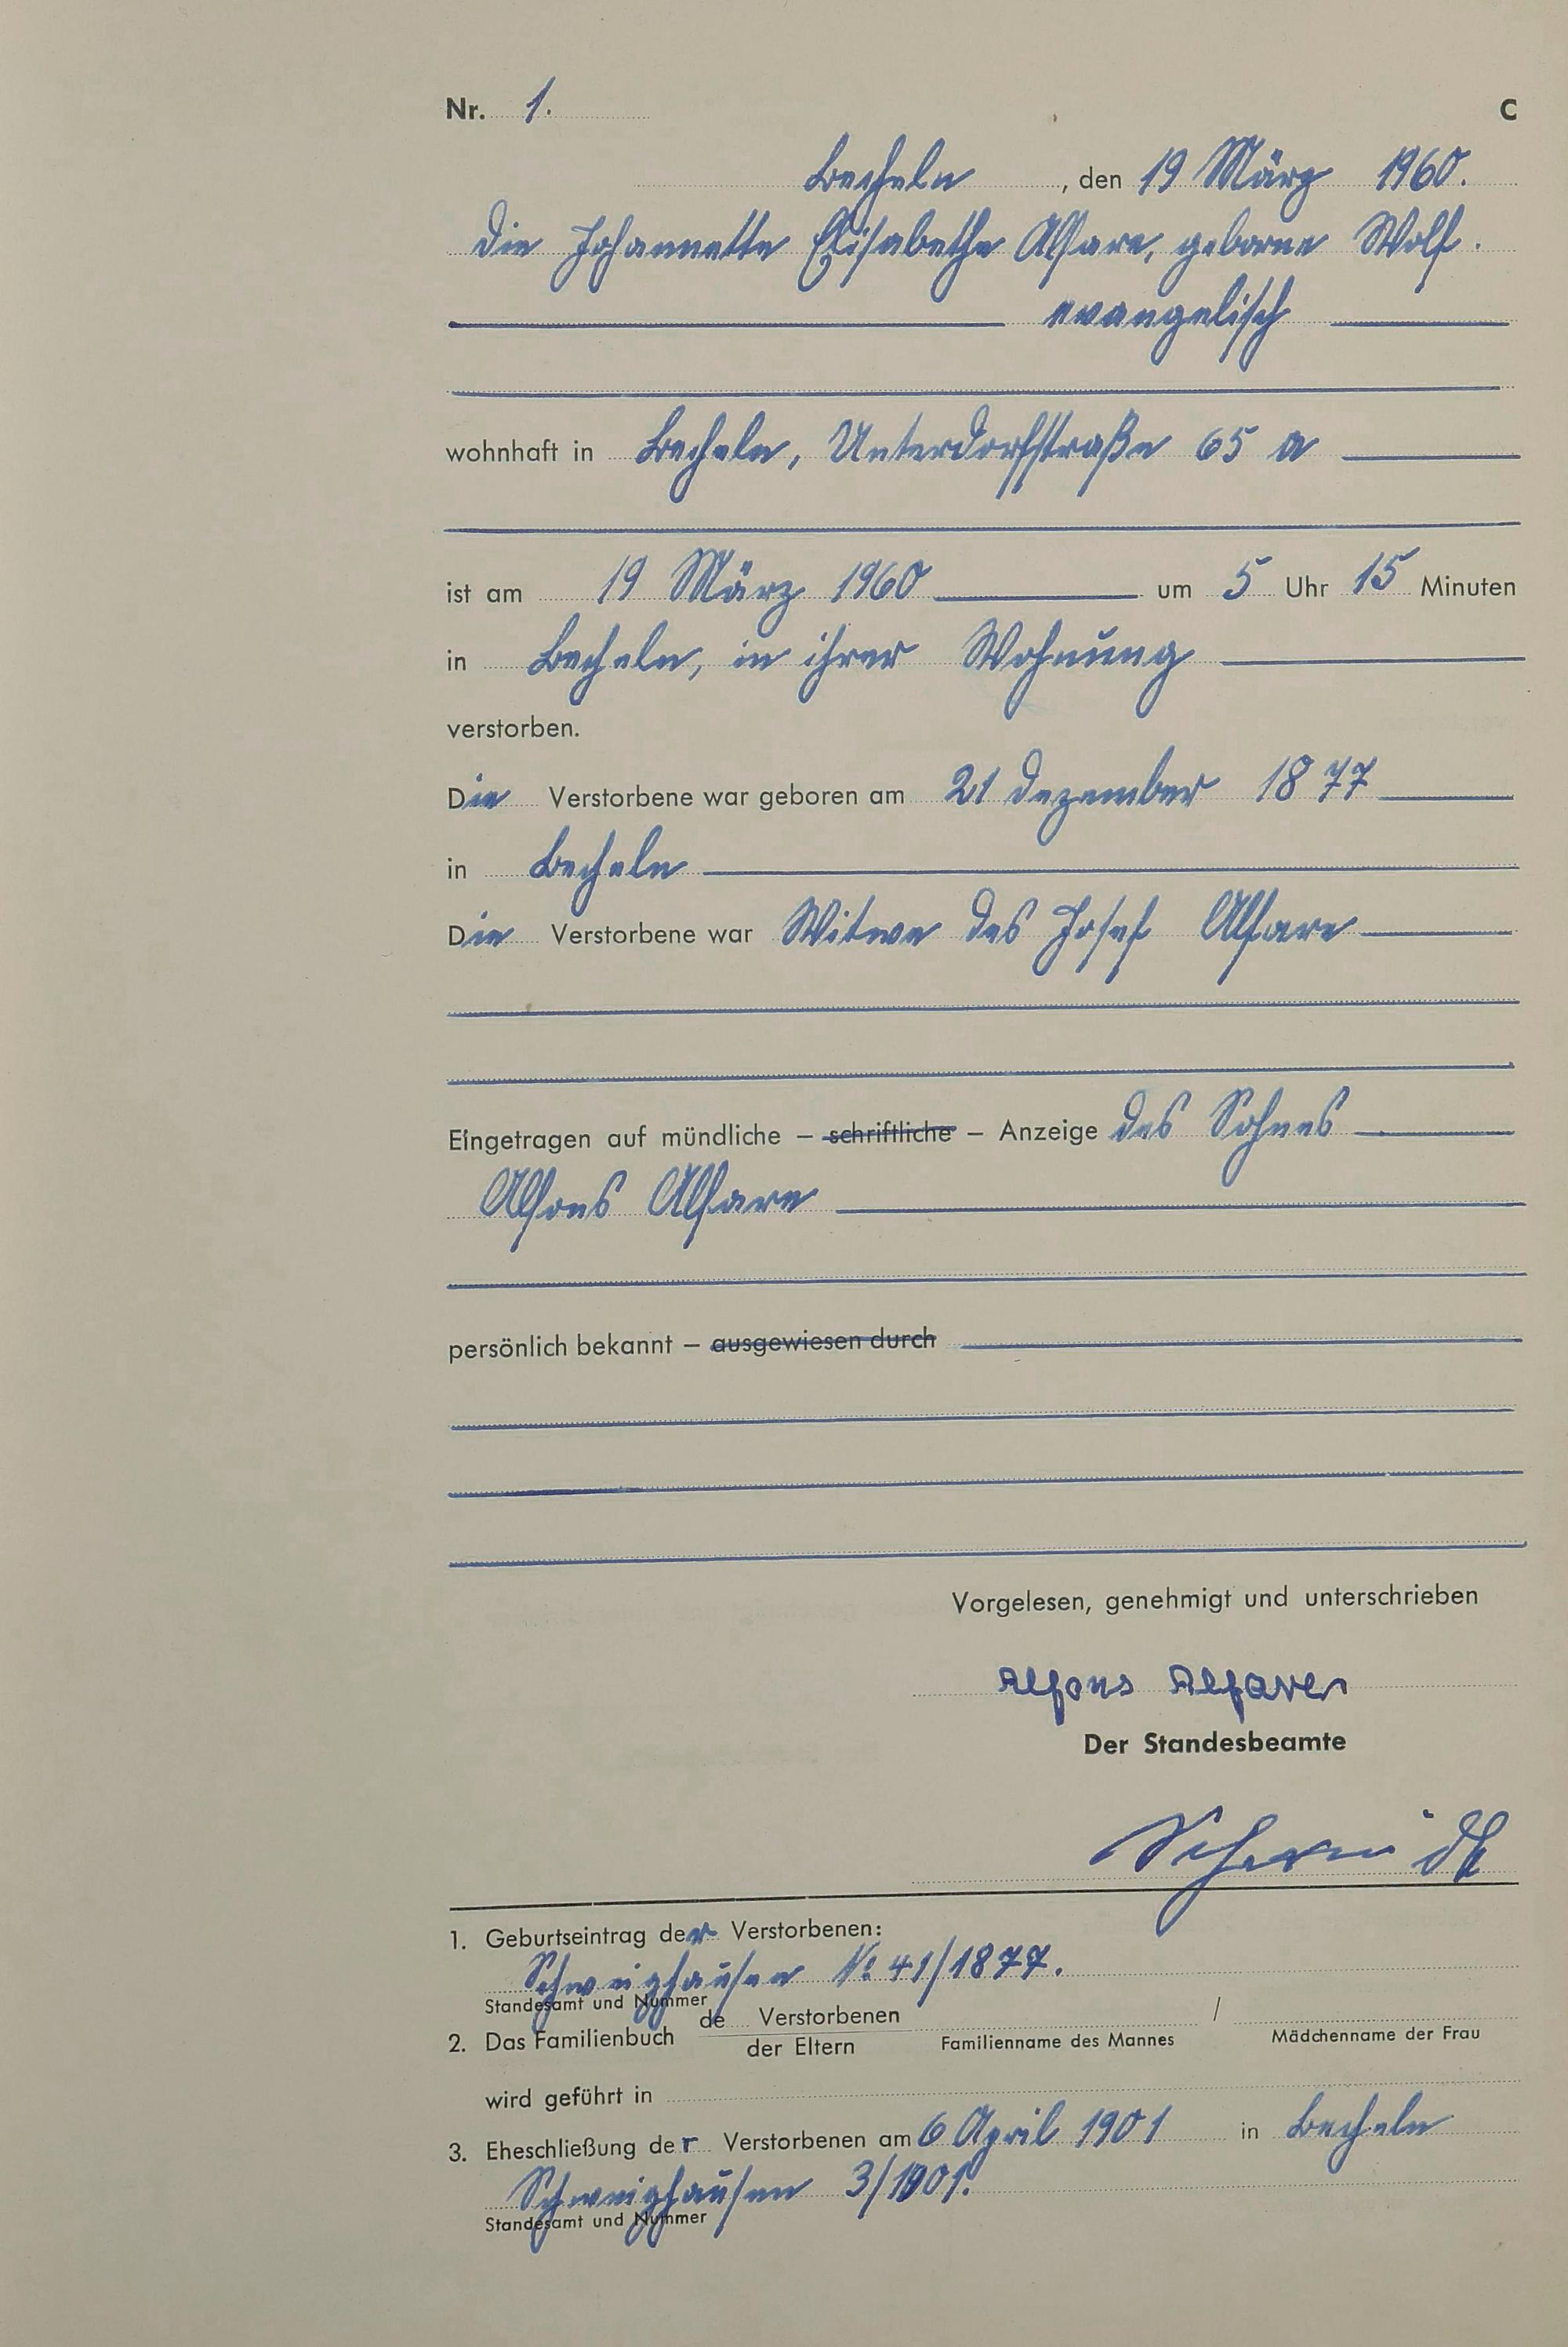 Nr. 1. C
Becheln, den 19 März 1960.
Die Johannette Elisabethe Alfare, geborne Wolf.
evangelisch
wohnhaft in Becheln, Unterdorfstraße 65 a
ist am 19 März 1960 um 5 Uhr 15 Minuten
in Becheln, in ihrer Wohnung
verstorben.
Die Verstorbene war geboren am 21 Dezember 1877
in Becheln
Die Verstorbene war Witwe des Josef Alfare
Eingetragen auf mündliche – schriftliche – Anzeige des Sohnes
Alfons Alfare
persönlich bekannt – ausgewiesen durch
Vorgelesen, genehmigt und unterschrieben
Alfons
Der Standesbeamte
1. Geburtseintrag der Verstorbenen:
Schweighausen No 41/1877.
Standesamt und Nummer
2. Das Familienbuch de Verstorbenen /
der Eltern Familienname des Mannes Mädchenname der Frau
wird geführt in
3. Eheschließung der Verstorbenen am 6 April 1901 in Becheln
Schweighausen 3/1901.
Standesamt und Nummer